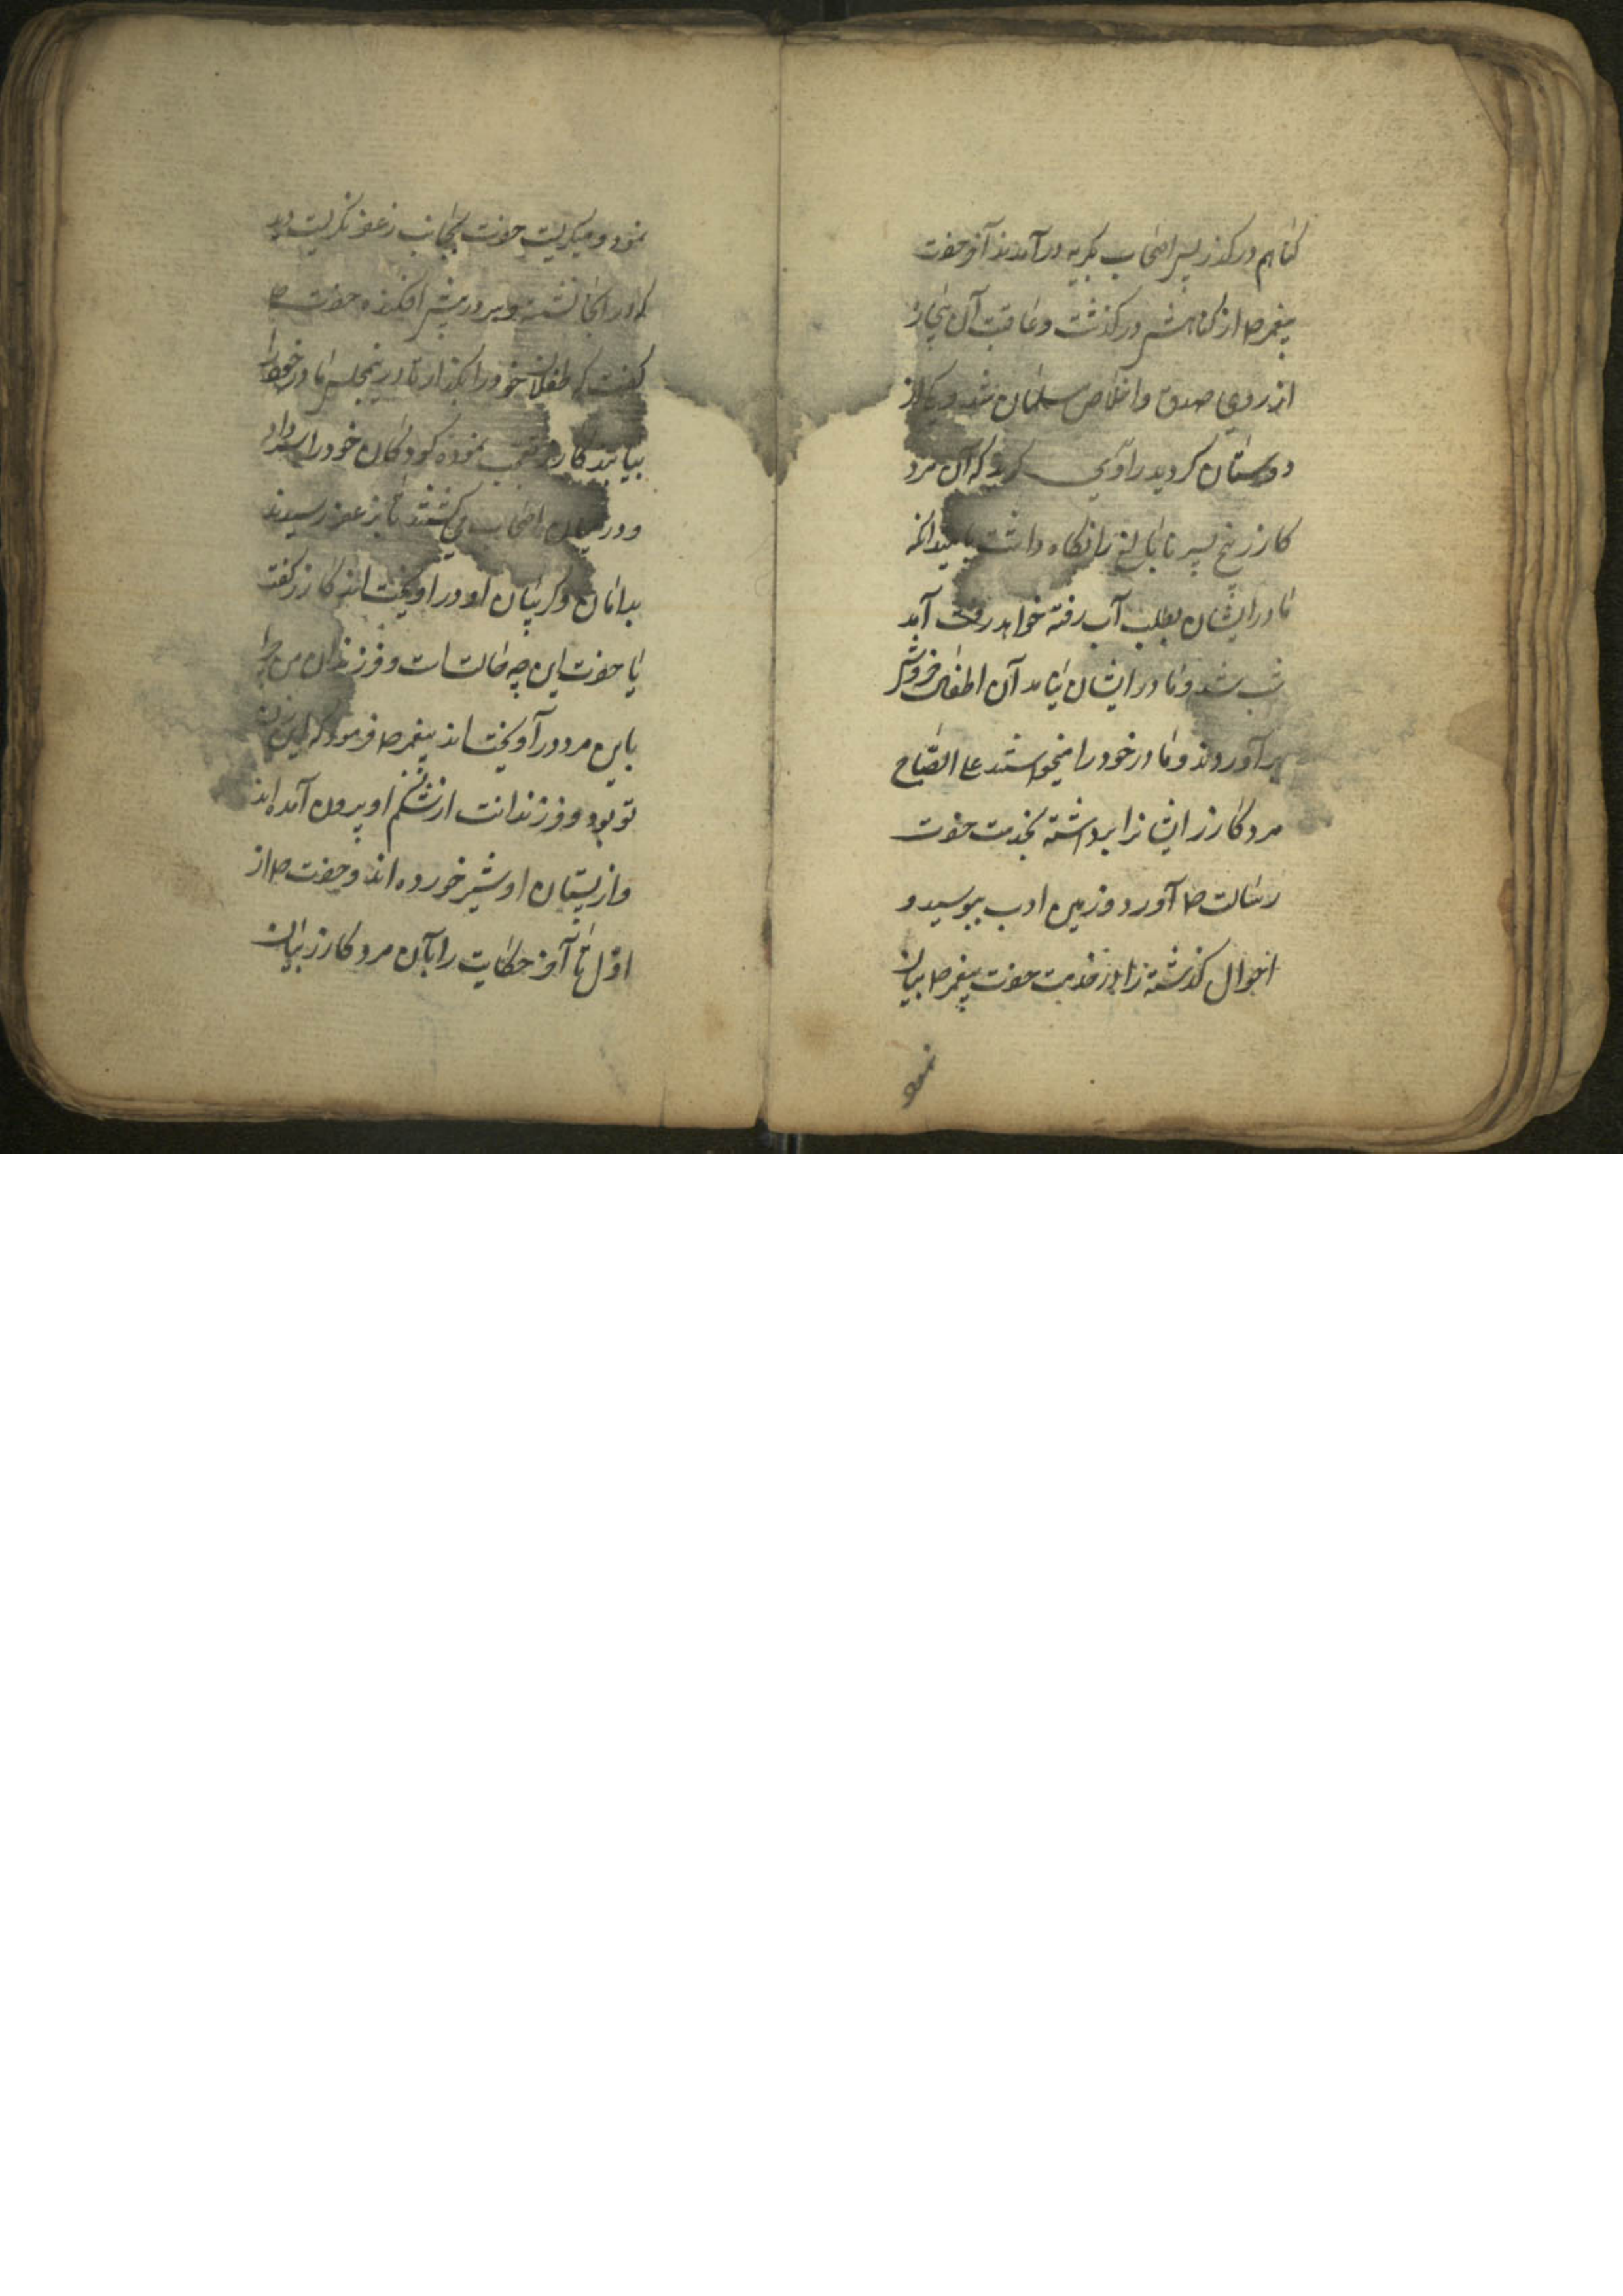 کناهم درکذر پس اصحاب بکریه درآمدند آخر حضرت
پیغمبر ص از کناهش درکذشت وعاقبت آن بیچاره
از روی صدق واخلاص مسلمان شد ویکی از
دوستان کردید راوی کرید که آن مرد
کازر پنج پسر نابالغ را نکاه داشت بامید انکه
مادر ایشان بطلب آب رفته خواهد آمد
شب شد ومادر ایشان نیامد آن اطفال خروش
برآوردند ومادر خود را میخواستند علی الصباح
مرد کازر ایشانرا برداشته بخدمت حضرت
رسالت ص آورد وزمین ادب ببوسید و
احوال کذشته را در خدمت حضرت پیغمبر ص بیان
نمود
نمود ومیکریست حضرت بجانب زعفر نکریست دید
که در انجا نشسته وسر در پیش افکنده حضرت ص
کفت که طفلان خود را بکذار تا در مجلس مادر خود را
بیابند کازر تعجب نموده کودکان خود را سر داد
ودر میان اصحاب می کشتند تا بزعفر رسیدند
بدامان وکریبان او در اویختند کازر کفت
یا حضرت این چه حالتست وفرزندان من چرا
باین مرد در آویخته اند پیغمبر ص فرمود که این زن
تو بود وفرزندانت از شکم او بیرون آمده اند
واز پستان او شیر خورده اند وحضرت ص از
اوّل تا آخر حکایت را بآن مرد کازر بیان